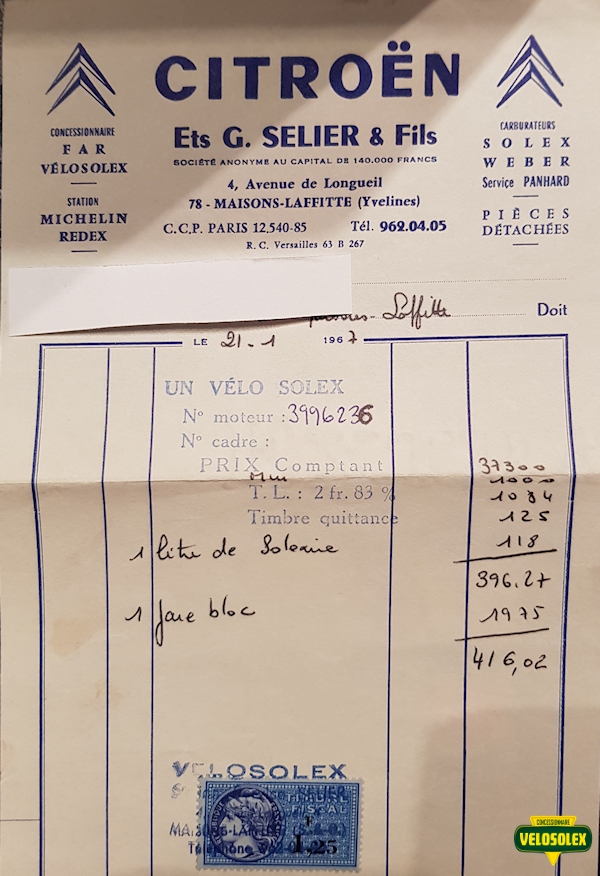 CITROËN
CONCESSIONNAIRE
FAR
VÉLOSOLEX
STATION
MICHELIN
REDEX
Ets G. SELIER & Fils
SOCIÉTÉ ANONYME AU CAPITAL DE 140.000 FRANCS
4, Avenue de Longueil
78 - MAISONS-LAFFITTE (Yvelines)
C.C.P. PARIS 12.540-85 Tél. 962.04.05
R. C. Versailles 63 B 267
CARBURATEURS
SOLEX
WEBER
Service PANHARD
PIÈCES
DÉTACHÉES
Laffitte Doit
LE 21-1 1967
UN VÉLO SOLEX
N° moteur : 3996236
N° cadre :
PRIX Comptant 37300
1000
T. L. : 2 fr. 83 % 1084
Timbre quittance 125
1 litre de Solexine 118
396.27
1 bloc 1975
416,02
VÉLOSOLEX
SELIER
FISCAL
1,25
CONCESSIONNAIRE
VELOSOLEX